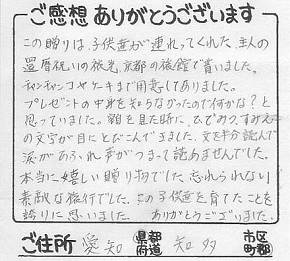 ご感想ありがとうございます
この贈りは、子供達が連れってくれた、主人の
還暦祝いの旅先、京都の旅館で貰いました。
チャンチャンコやケーキまで用意してありました。
プレゼントの中身を知らなかったので何かな?と
思っていました。額を見た時に、ひでみつ、すみえ
の文字が目にとびこんできました。文を半分読んで
涙があふれ声がつまって読めませんでした。
本当に嬉しい贈り物でした。忘れられない
素敵な旅行でした。この子供達を育てたことを
誇りに思いました。 ありがとうございました。
ご住所 愛知 都道府県 知多 市区町郡